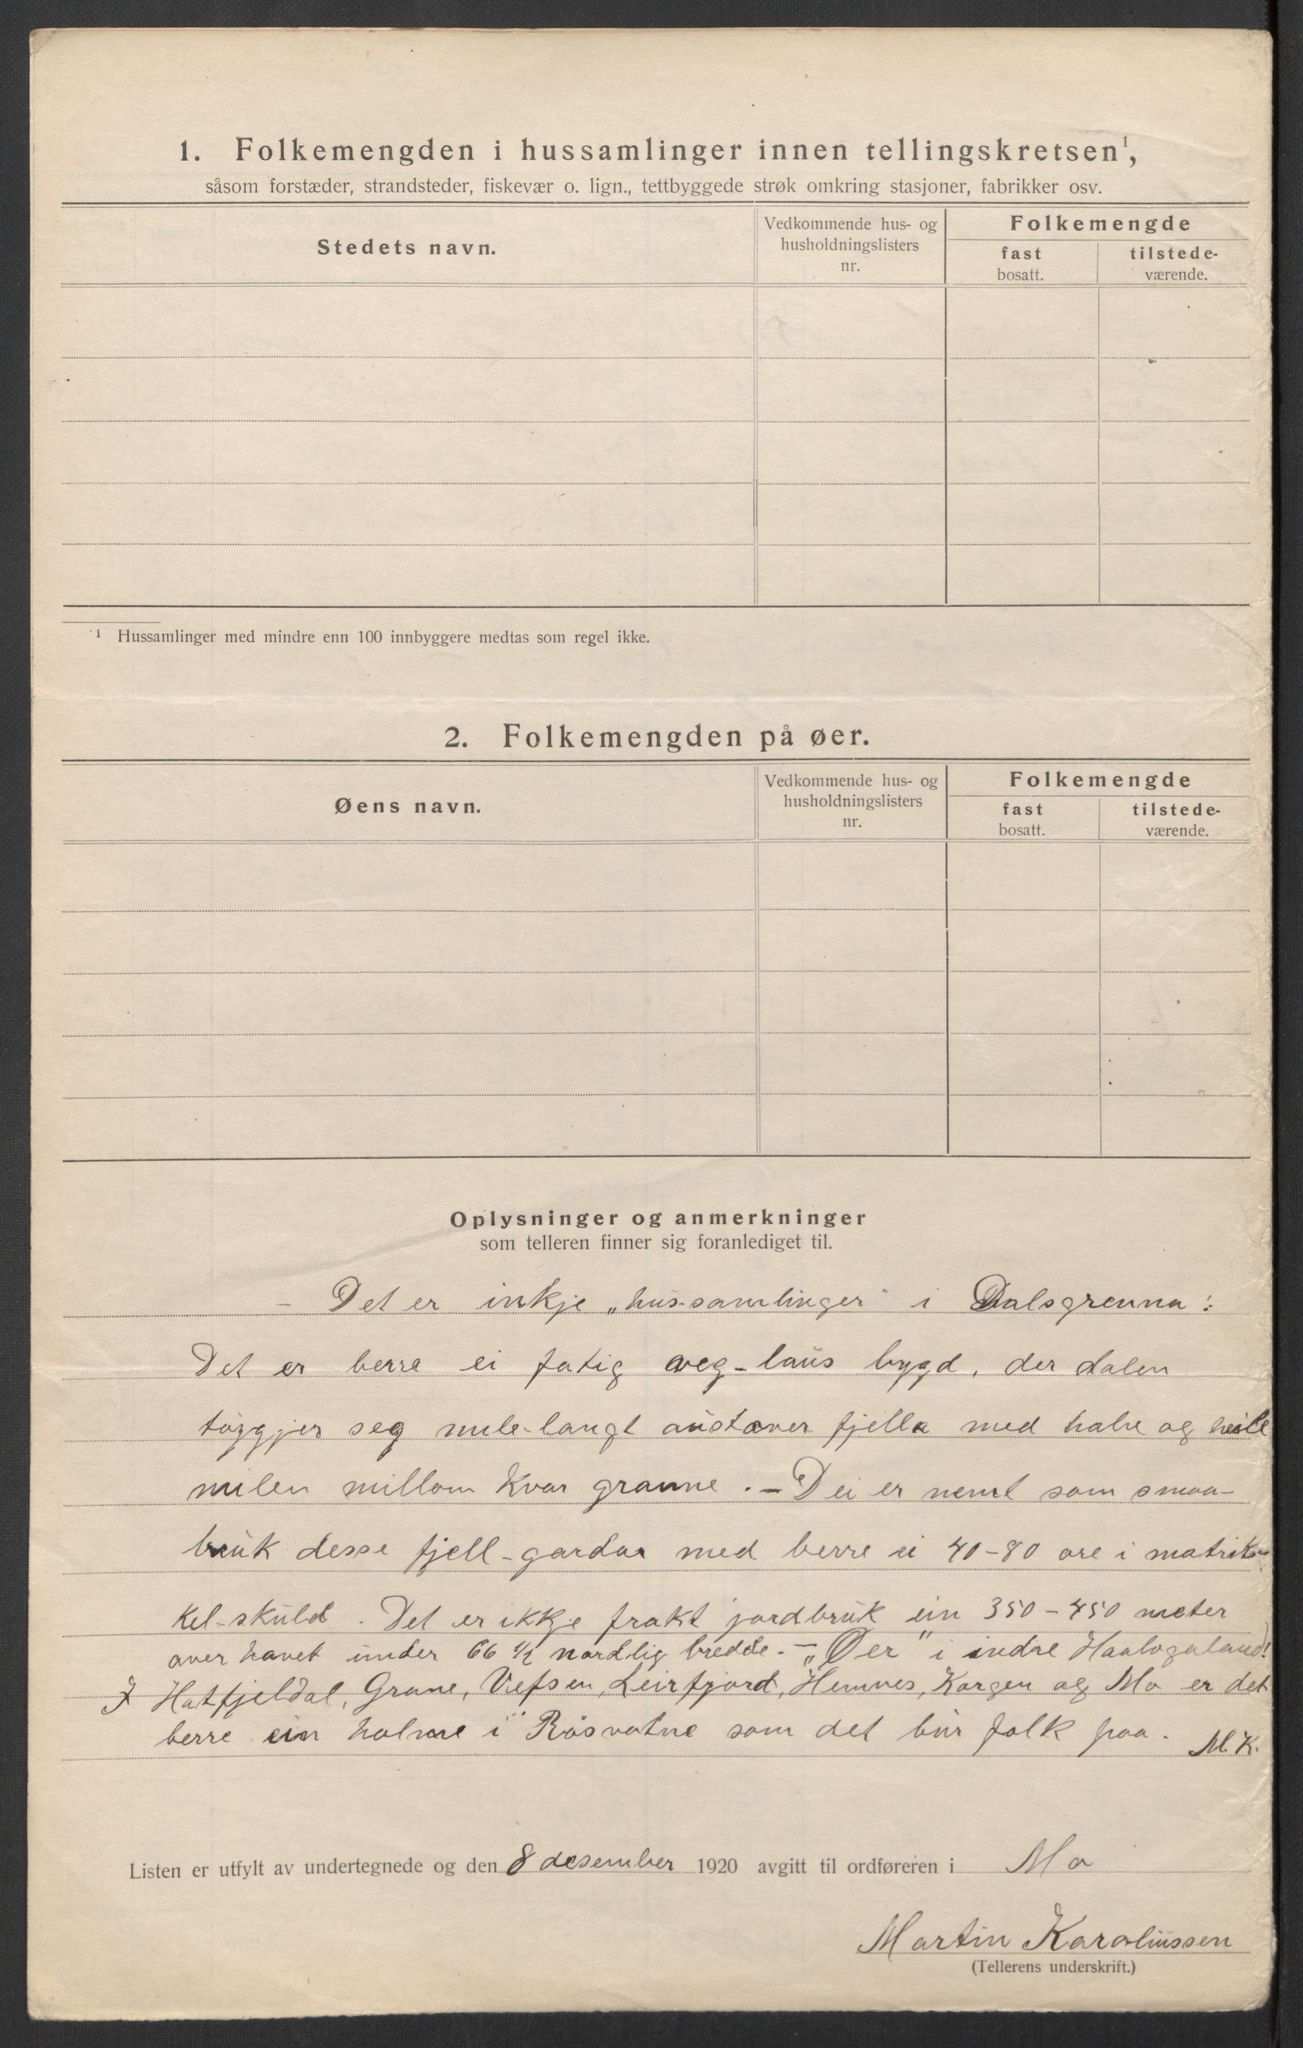 1. Folkemengden i hussamlinger innen tellingskretsen¹,
såsom forstæder, strandsteder, fiskevær o. lign., tettbyggede strøk omkring stasjoner, fabrikker osv.
Stedets navn.
Vedkommende hus- og
husholdningslisters
nr.
Folkemengde
fast
bosatt.
tilstede-
værende.
¹ Hussamlinger med mindre enn 100 innbyggere medtas som regel ikke.
2. Folkemengden på øer.
Øens navn.
Vedkommende hus- og
husholdningslisters
nr.
Folkemengde
fast
bosatt.
tilstede-
værende.
Oplysninger og anmerkninger
som telleren finner sig foranlediget til.
– Det er inkje „hus-samlinger" i Dalsgrenna:
Det er berre ei fatig veg-laus bygd, der dalen
tøygjer seg mile-langt austover fjella med halve og heile
milen millom kvar granne. – Dei er nemt som smaa-
bruk desse fjell-gardar med berre ei 40-80 øre i matrik-
kel-skuld. Det er ikkje frakt jordbruk ein 350-450 meter
over havet under 66 ½ nordlig bredde. – „Øer" i indre Haalogaland!
I Hatfjeldal, Grane, Vefsen, Leirfjord, Hemnes, Korgen og Mo er det
berre ein holme i Røsvatne som det bur folk paa. M.K.
Listen er utfylt av undertegnede og den 8 desember 1920 avgitt til ordføreren i Mo
Martin Karoliussen
(Tellerens underskrift.)